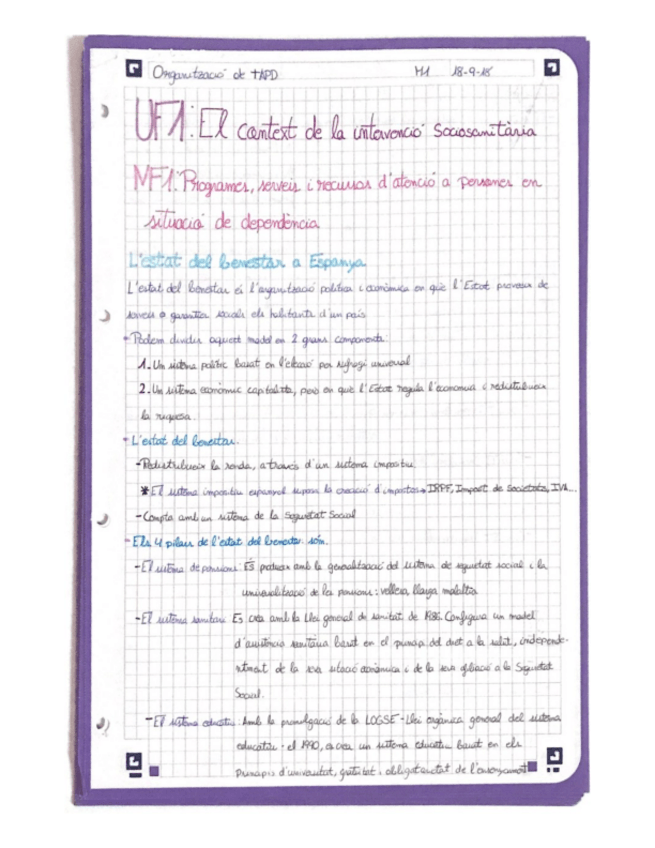 Organització de TAPD M1 18-9-18
UF1: El context de la intervenció sociosanitària
NF1: Programes, serveis i recursos d'atenció a persones en
situació de dependència
L'estat del benestar a Espanya
L'estat del benestar és l'organització política i econòmica en què l'Estat proveeix de
serveis o garanties socials els habitants d'un país
- Podem dividir aquest model en 2 grans components:
1. Un sistema polític basat en l'elecció per sufragi universal
2. Un sistema econòmic capitalista, però en què l'Estat regula l'economia i redistribueix
la riquesa.
- L'estat del benestar.
- Redistribueix la renda, a través d'un sistema impositiu.
* El sistema impositiu espanyol suposa la creació d'impostos → IRPF, Impost de Societats, IVA...
- Compta amb un sistema de la Seguretat Social
- Els 4 pilars de l'estat del benestar són.
- El sistema de pensions: És produeix amb la generalització del sistema de seguretat social i la
universalització de les pensions: vellesa, llarga malaltia
- El sistema sanitari: Es crea amb la Llei general de sanitat de 1986. Configura un model
d'assistència sanitària basat en el principi del dret a la salut, independe-
ntment de la seva situació econòmica i de la seva afiliació a la Seguretat
Social.
- El sistema educatiu: Amb la promulgació de la LOGSE - Llei orgànica general del sistema
educatiu - el 1990, es crea un sistema educatiu basat en els
principis d'universitat, gratuïtat i obligatorietat de l'ensenyament